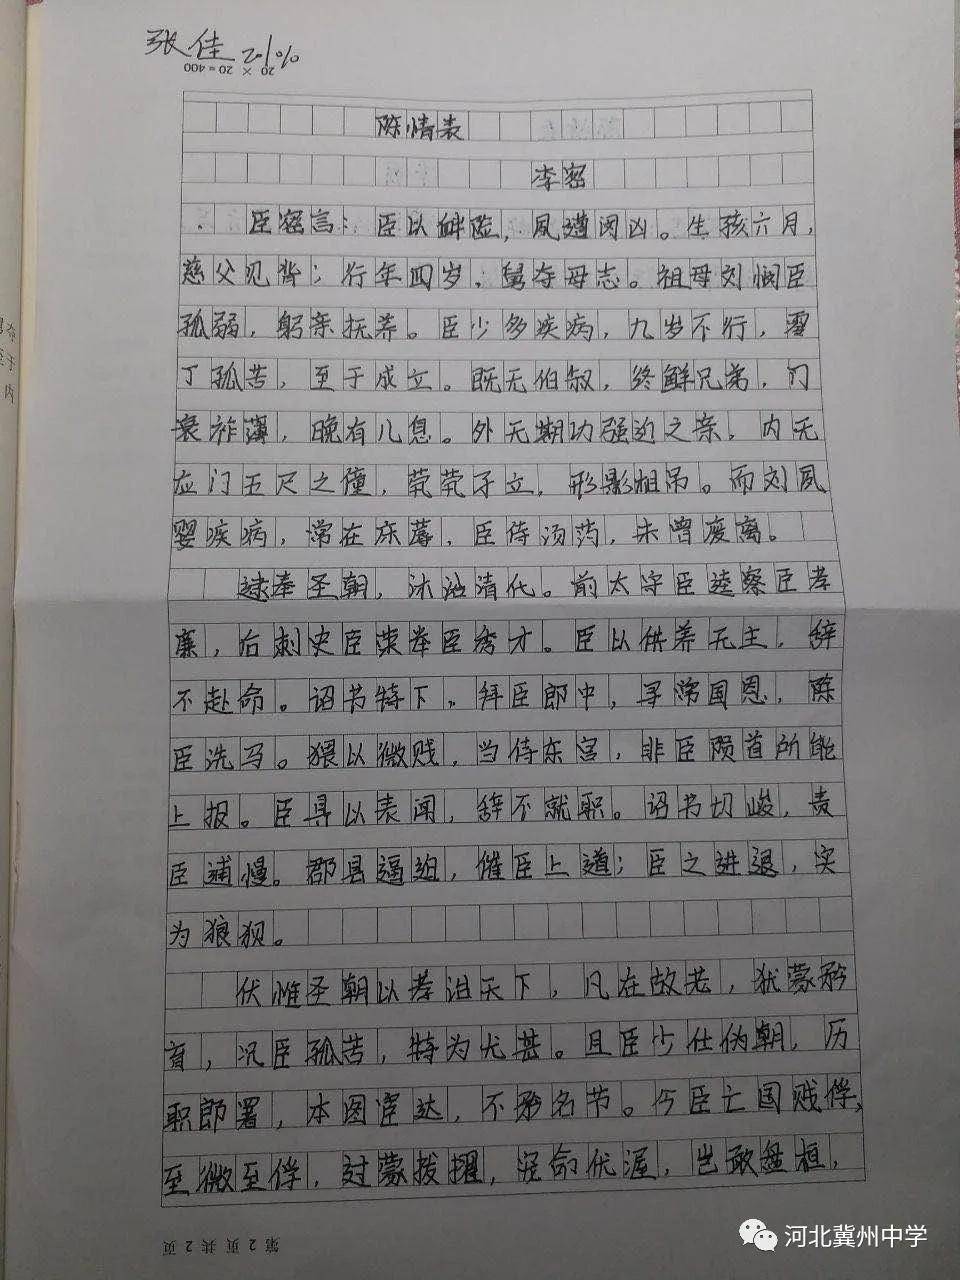 张佳 201%
20×20=400
陈情表
李密
臣密言：臣以衅险，夙遭闵凶。生孩六月，
慈父见背；行年四岁，舅夺母志。祖母刘悯臣
孤弱，躬亲抚养。臣少多疾病，九岁不行，零
丁孤苦，至于成立。既无伯叔，终鲜兄弟，门
衰祚薄，晚有儿息。外无期功强近之亲，内无
应门五尺之僮，茕茕孑立，形影相吊。而刘夙
婴疾病，常在床蓐，臣侍汤药，未曾废离。
逮奉圣朝，沐浴清代。前太守臣逵察臣孝
廉，后刺史臣荣举臣秀才。臣以供养无主，辞
不赴命。诏书特下，拜臣郎中，寻常国恩，除
臣洗马。猥以微贱，当侍东宫，非臣陨首所能
上报。臣具以表闻，辞不就职。诏书切峻，责
臣逋慢。郡县逼迫，催臣上道；臣之进退，实
为狼狈。
伏惟圣朝以孝治天下，凡在故老，犹蒙矜
育，况臣孤苦，特为尤甚。且臣少仕伪朝，历
职郎署，本图宦达，不矜名节。今臣亡国贱俘，
至微至俘，过蒙拔擢，宠命优渥，岂敢盘桓，
第2页共2页
河北冀州中学